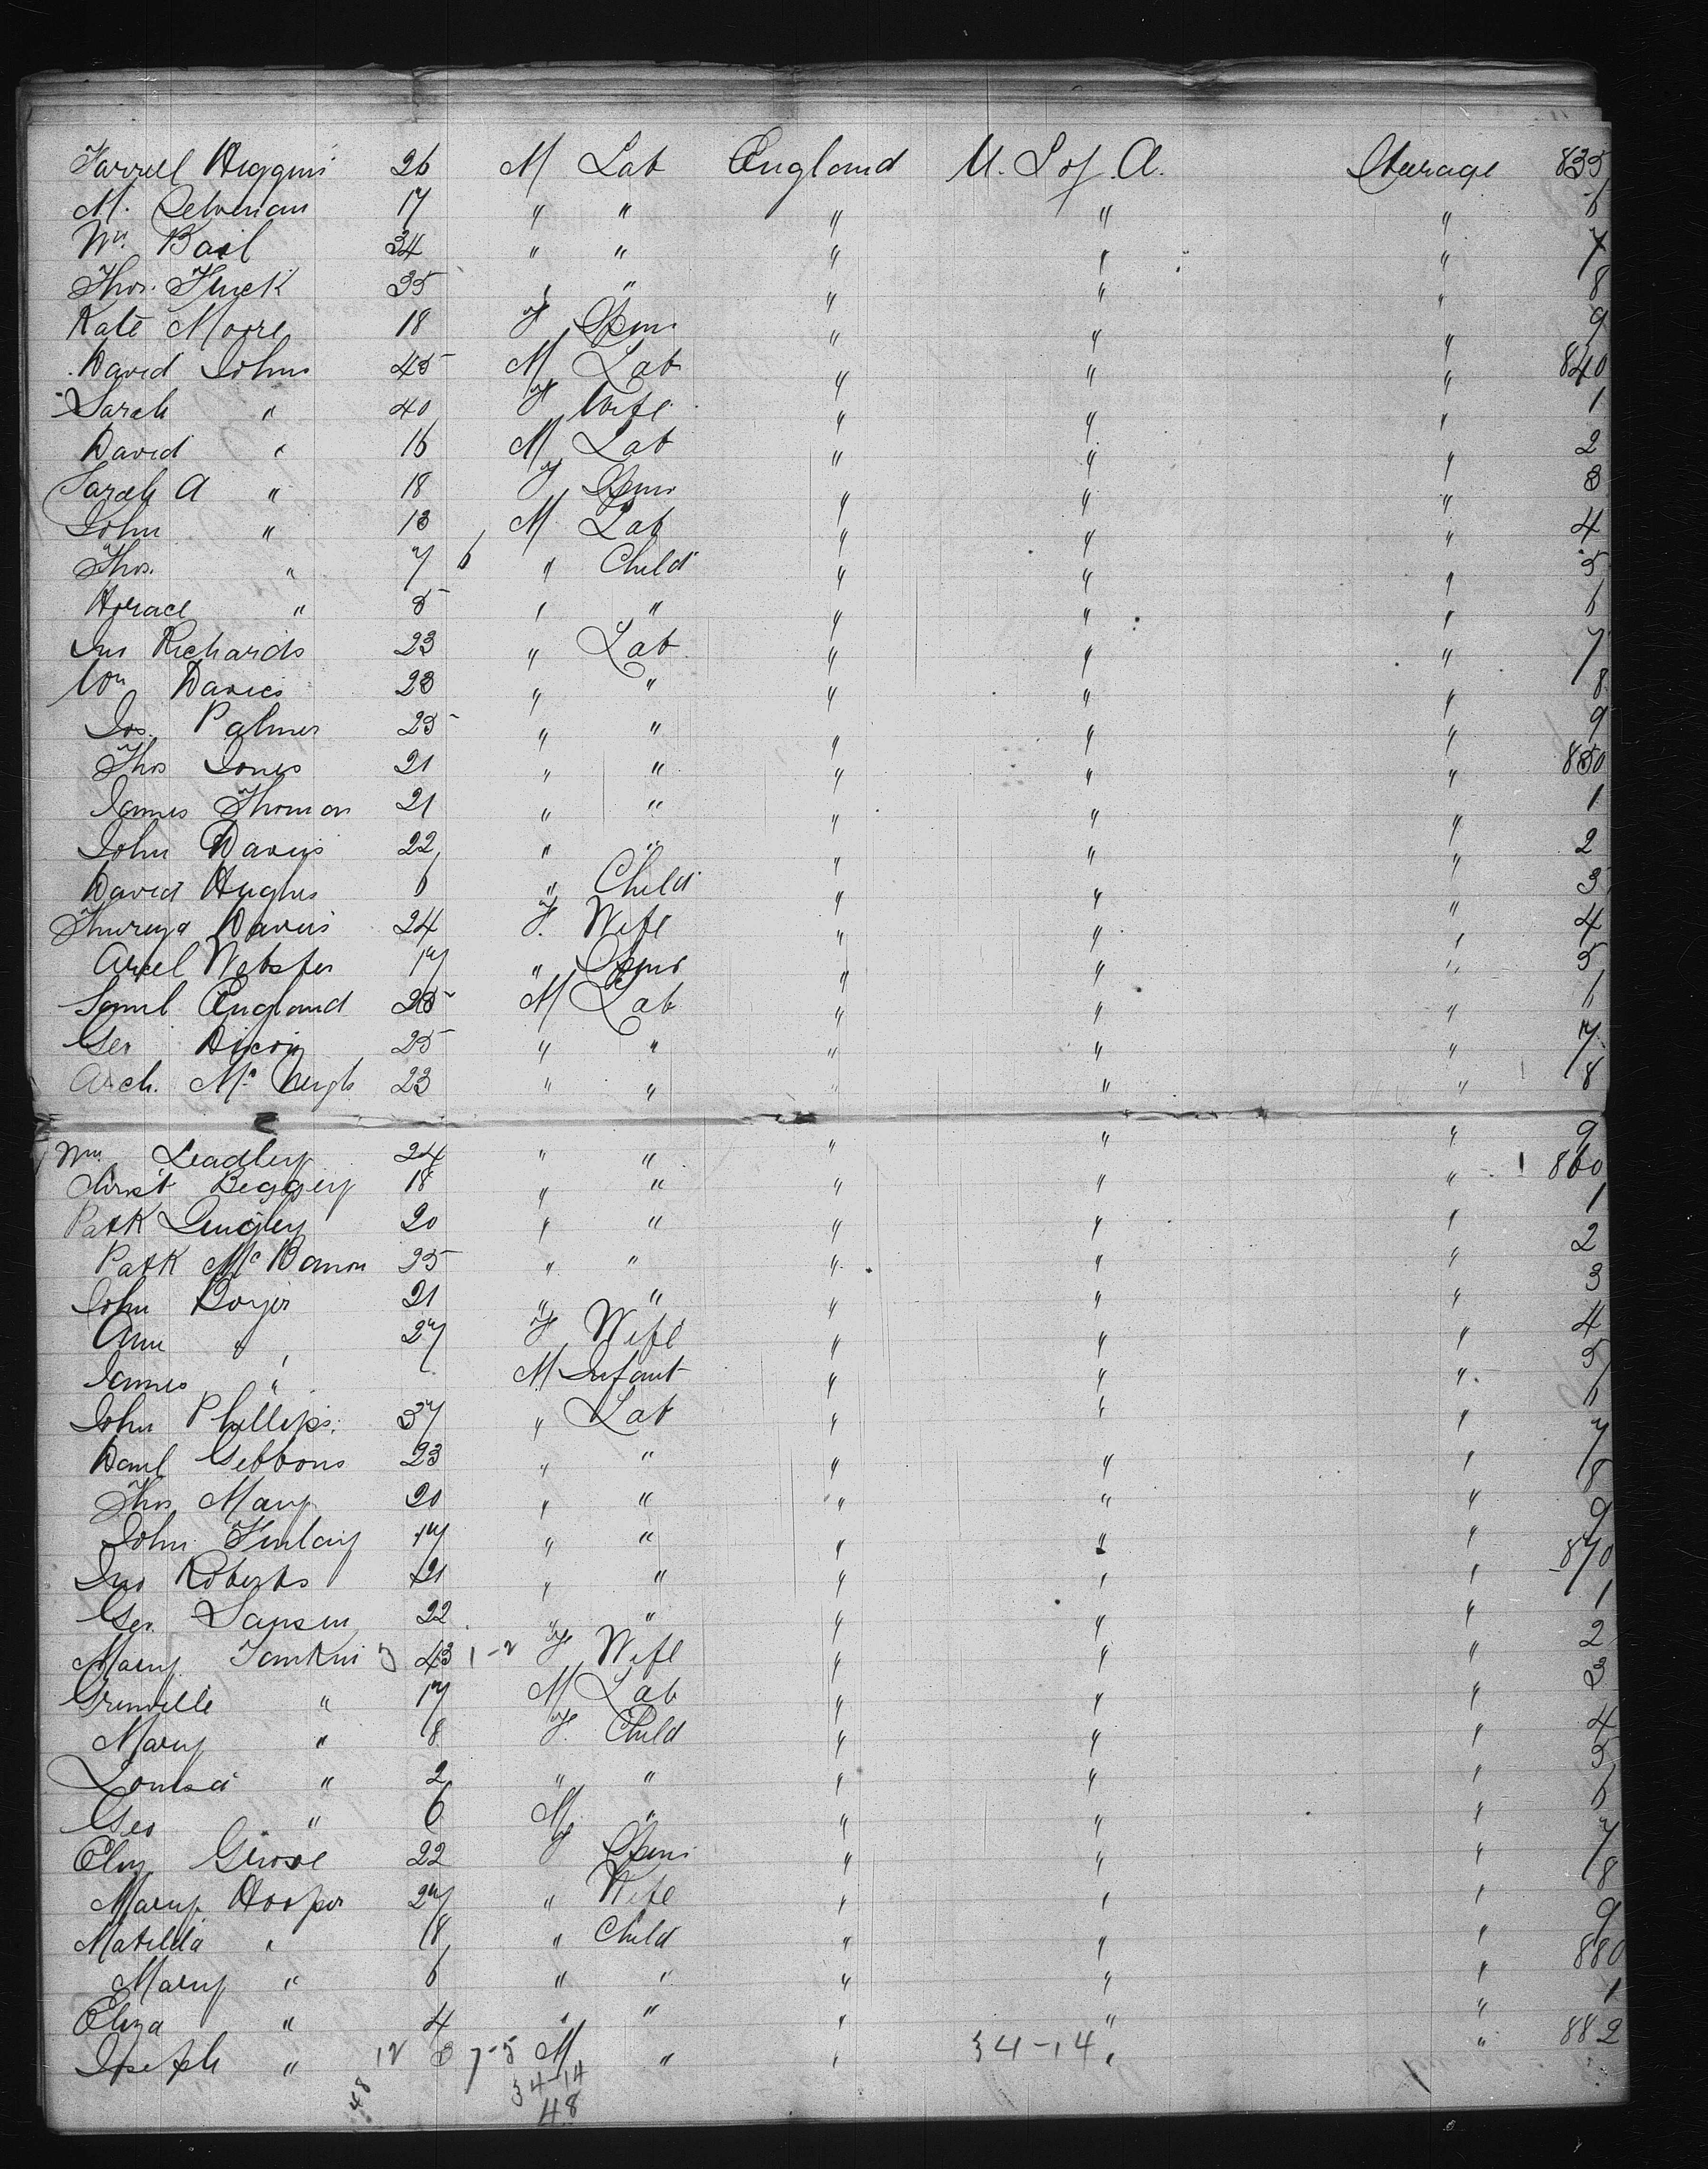 Farrell Higgins 26 M Lab England U. S of A. Steerage 835
M. 17 " " " " " 6
Wm. Bail 34 " " " " " 7
Thos. 35 " " " " " 8
Kate Moore 18 F Spins " " " 9
David Johns 45 M Lab " " " 840
Sarah " 40 F Wife " " " 1
David " 16 M Lab " " " 2
Sarah A " 18 F Spins " " " 3
John " 13 M Lab " " " 4
Thos. " 7 6 " Child " " " 5
Horace " 5 " " " " " 6
Jno Richards 23 " Lab " " " 7
Wm Davies 23 " " " " " 8
Jos. Palmer 25 " " " " " 9
Thos Jones 21 " " " " " 850
James Thomas 21 " " " " " 1
John Davis 22 " " " " " 2
David Hughes 6 " Child " " " 3
Davies 24 F. Wife " " " 4
Webster 17 " Spins " " " 5
Saml England 25 M Lab " " " 6
Geo Dixon 25 " " " " " 7
Arch. Mc 23 " " " " " 8
Wm. Leadley 24 " " " " " 9
Christ Beggey 18 " " " " " 860
Patk Quigley 20 " " " " " 1
Patk 25 " " " " " 2
John 21 " " " " " 3
Ann " 27 F Wife " " " 4
James " M Infant " " " 5
John Phillips. 37 " Lab " " " 6
Danl Gibbons 23 " " " " " 7
Thos Many 20 " " " " " 8
John Finlay 17 " " " " " 9
Jno Roberts 21 " " " " " 870
Geo. 22 " " " " " 1
Mary Tomkin 43 1-2 F Wife " " " 2
Grenville " 17 M Lab " " " 3
Mary " 8 F. Child " " " 4
Louisa " 2 " " " " " 5
Geo " 6 M " " " " 6
Eliz Grose 22 F Spins " " " 7
Mary Hooper 27 " Wife " " " 8
Matilda " 8 " Child " " " 9
Mary " 6 " " " " " 880
Eliza " 4 " " " " " 1
Joseph " 12 3 7-5 M " " 34-14 " " 882
34-14
48
48